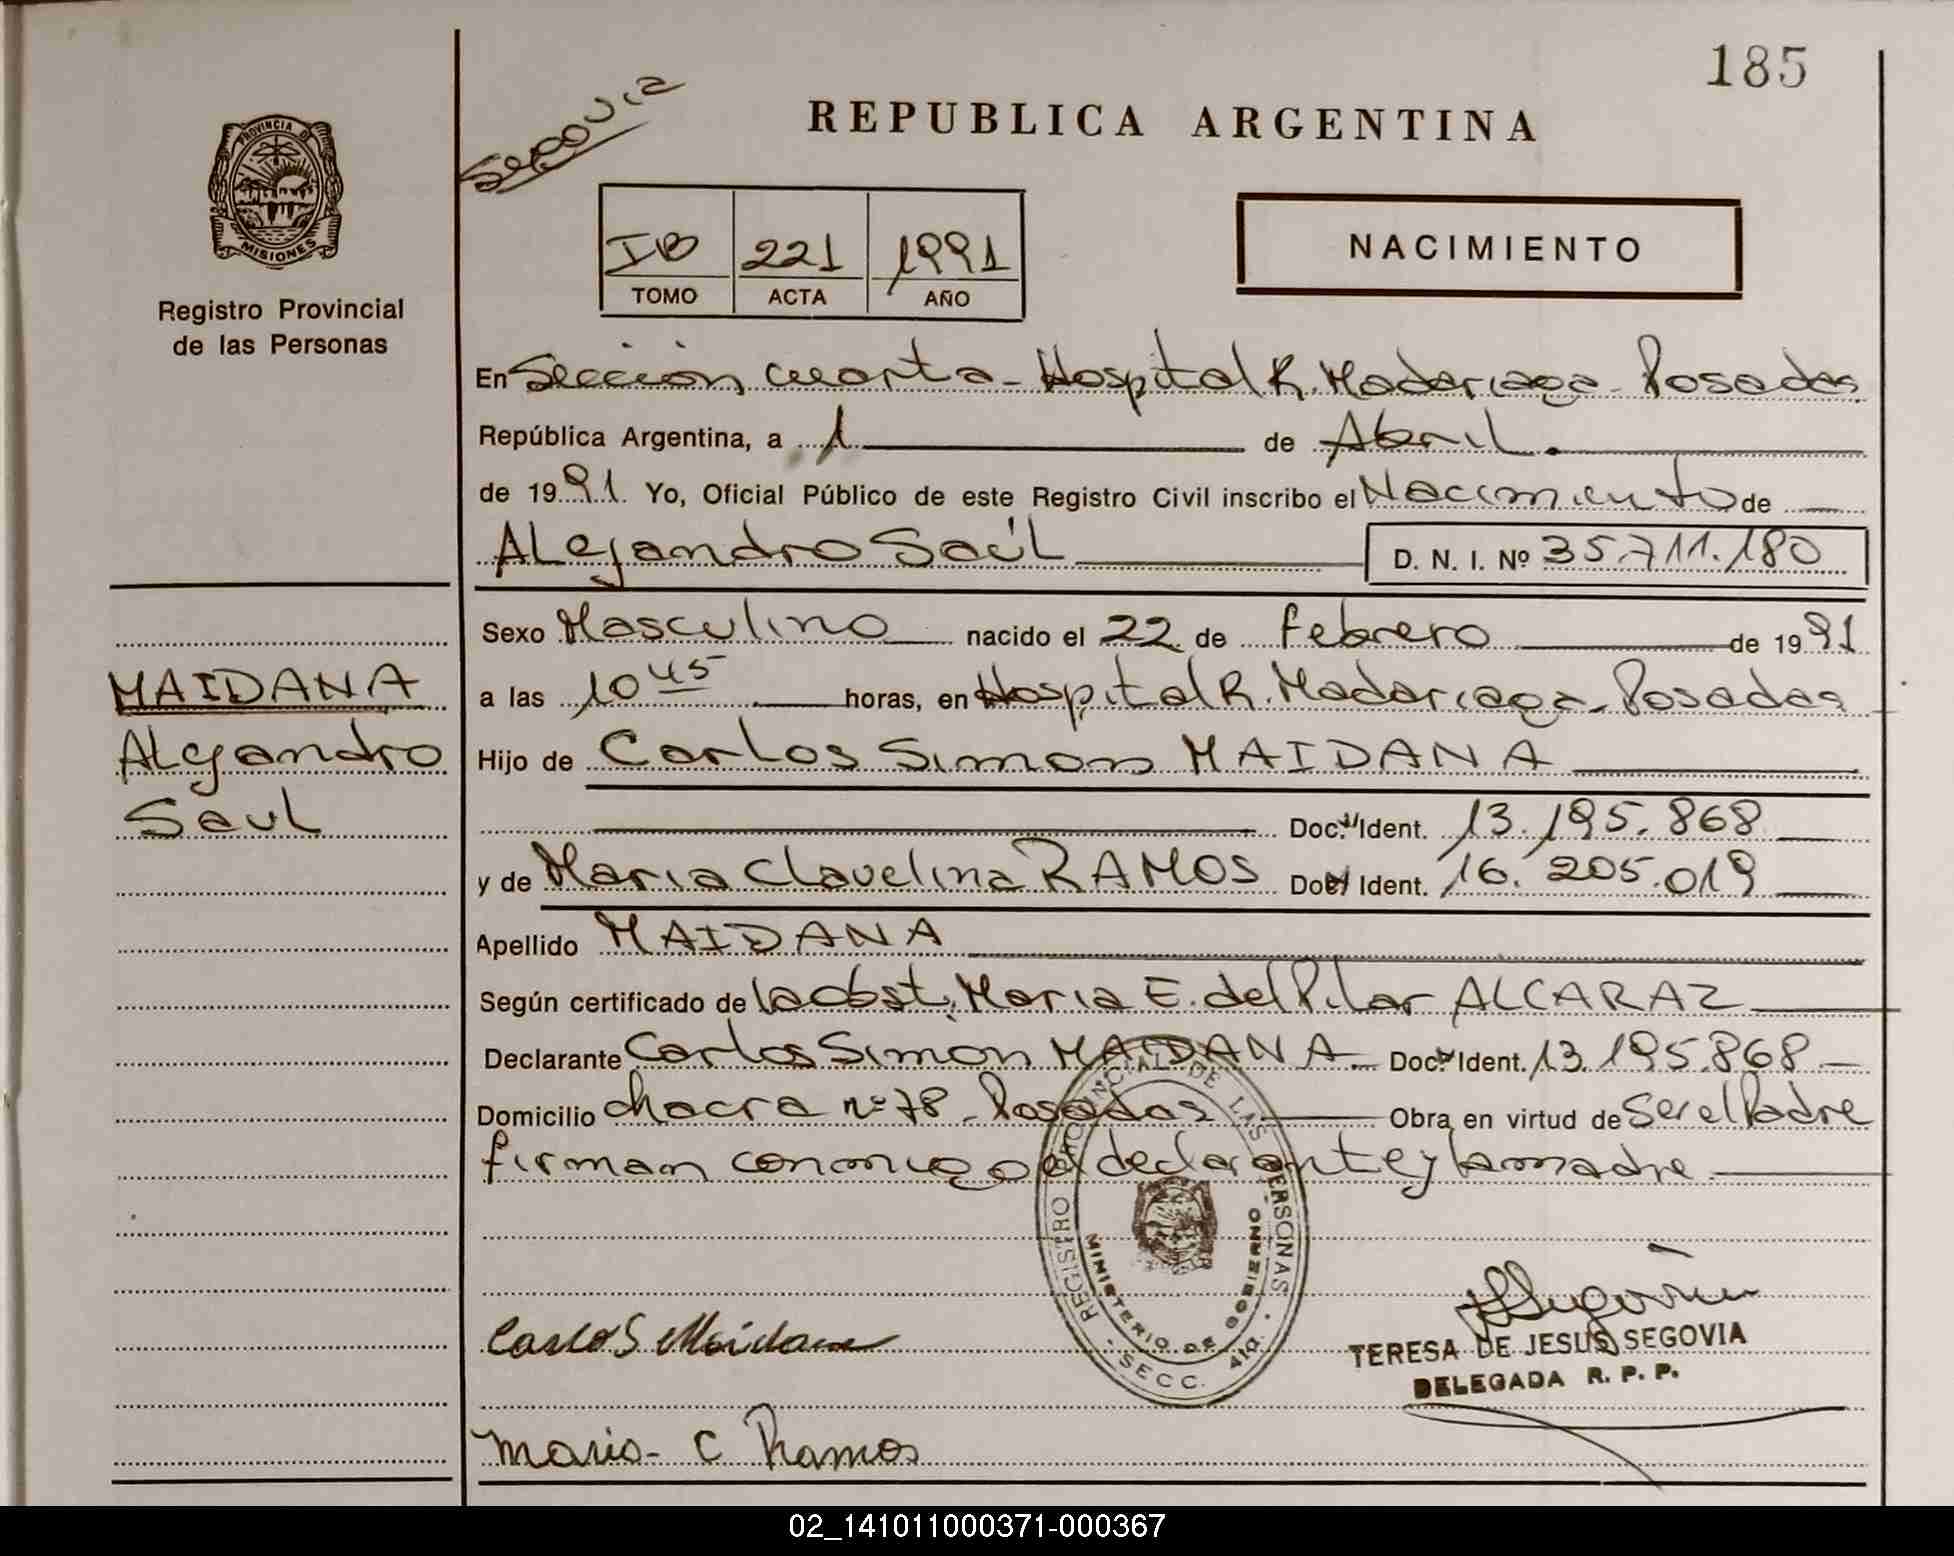 185
Segovia
REPUBLICA ARGENTINA
PROVINCIA D
MISIONES
Registro Provincial
de las Personas
IB 221 1991
TOMO ACTA AÑO
NACIMIENTO
En Sección cuarta - Hospital R. Madariaga - Posadas
República Argentina, a 1 de Abril
de 1991 Yo, Oficial Público de este Registro Civil inscribo el Nacimiento de
Alejandro Saúl D. N. I. Nº 35.711.180
Sexo Masculino nacido el 22 de febrero de 1991
a las 10 45 horas, en Hospital R. Madariaga - Posadas
Hijo de Carlos Simon MAIDANA
Doc. Ident. 13.195.868
y de Maria Clavelina RAMOS Doc Ident. 16.205.019
Apellido MAIDANA
Según certificado de la obst. Maria E. del Pilar ALCARAZ
Declarante Carlos Simon MAIDANA - Doc. Ident. 13.195.868 -
Domicilio chacra nº 78 - Posadas Obra en virtud de Ser el Padre
firman conmigo el declarante y la madre
MAIDANA
Alejandro
Saul
REGISTRO PROVINCIAL DE LAS PERSONAS
MINISTERIO DE GOBIERNO
SECC. 4ta.
Carlos Maidana
TERESA DE JESUS SEGOVIA
DELEGADA R. P. P.
Maria - C Ramos
02_141011000371-000367